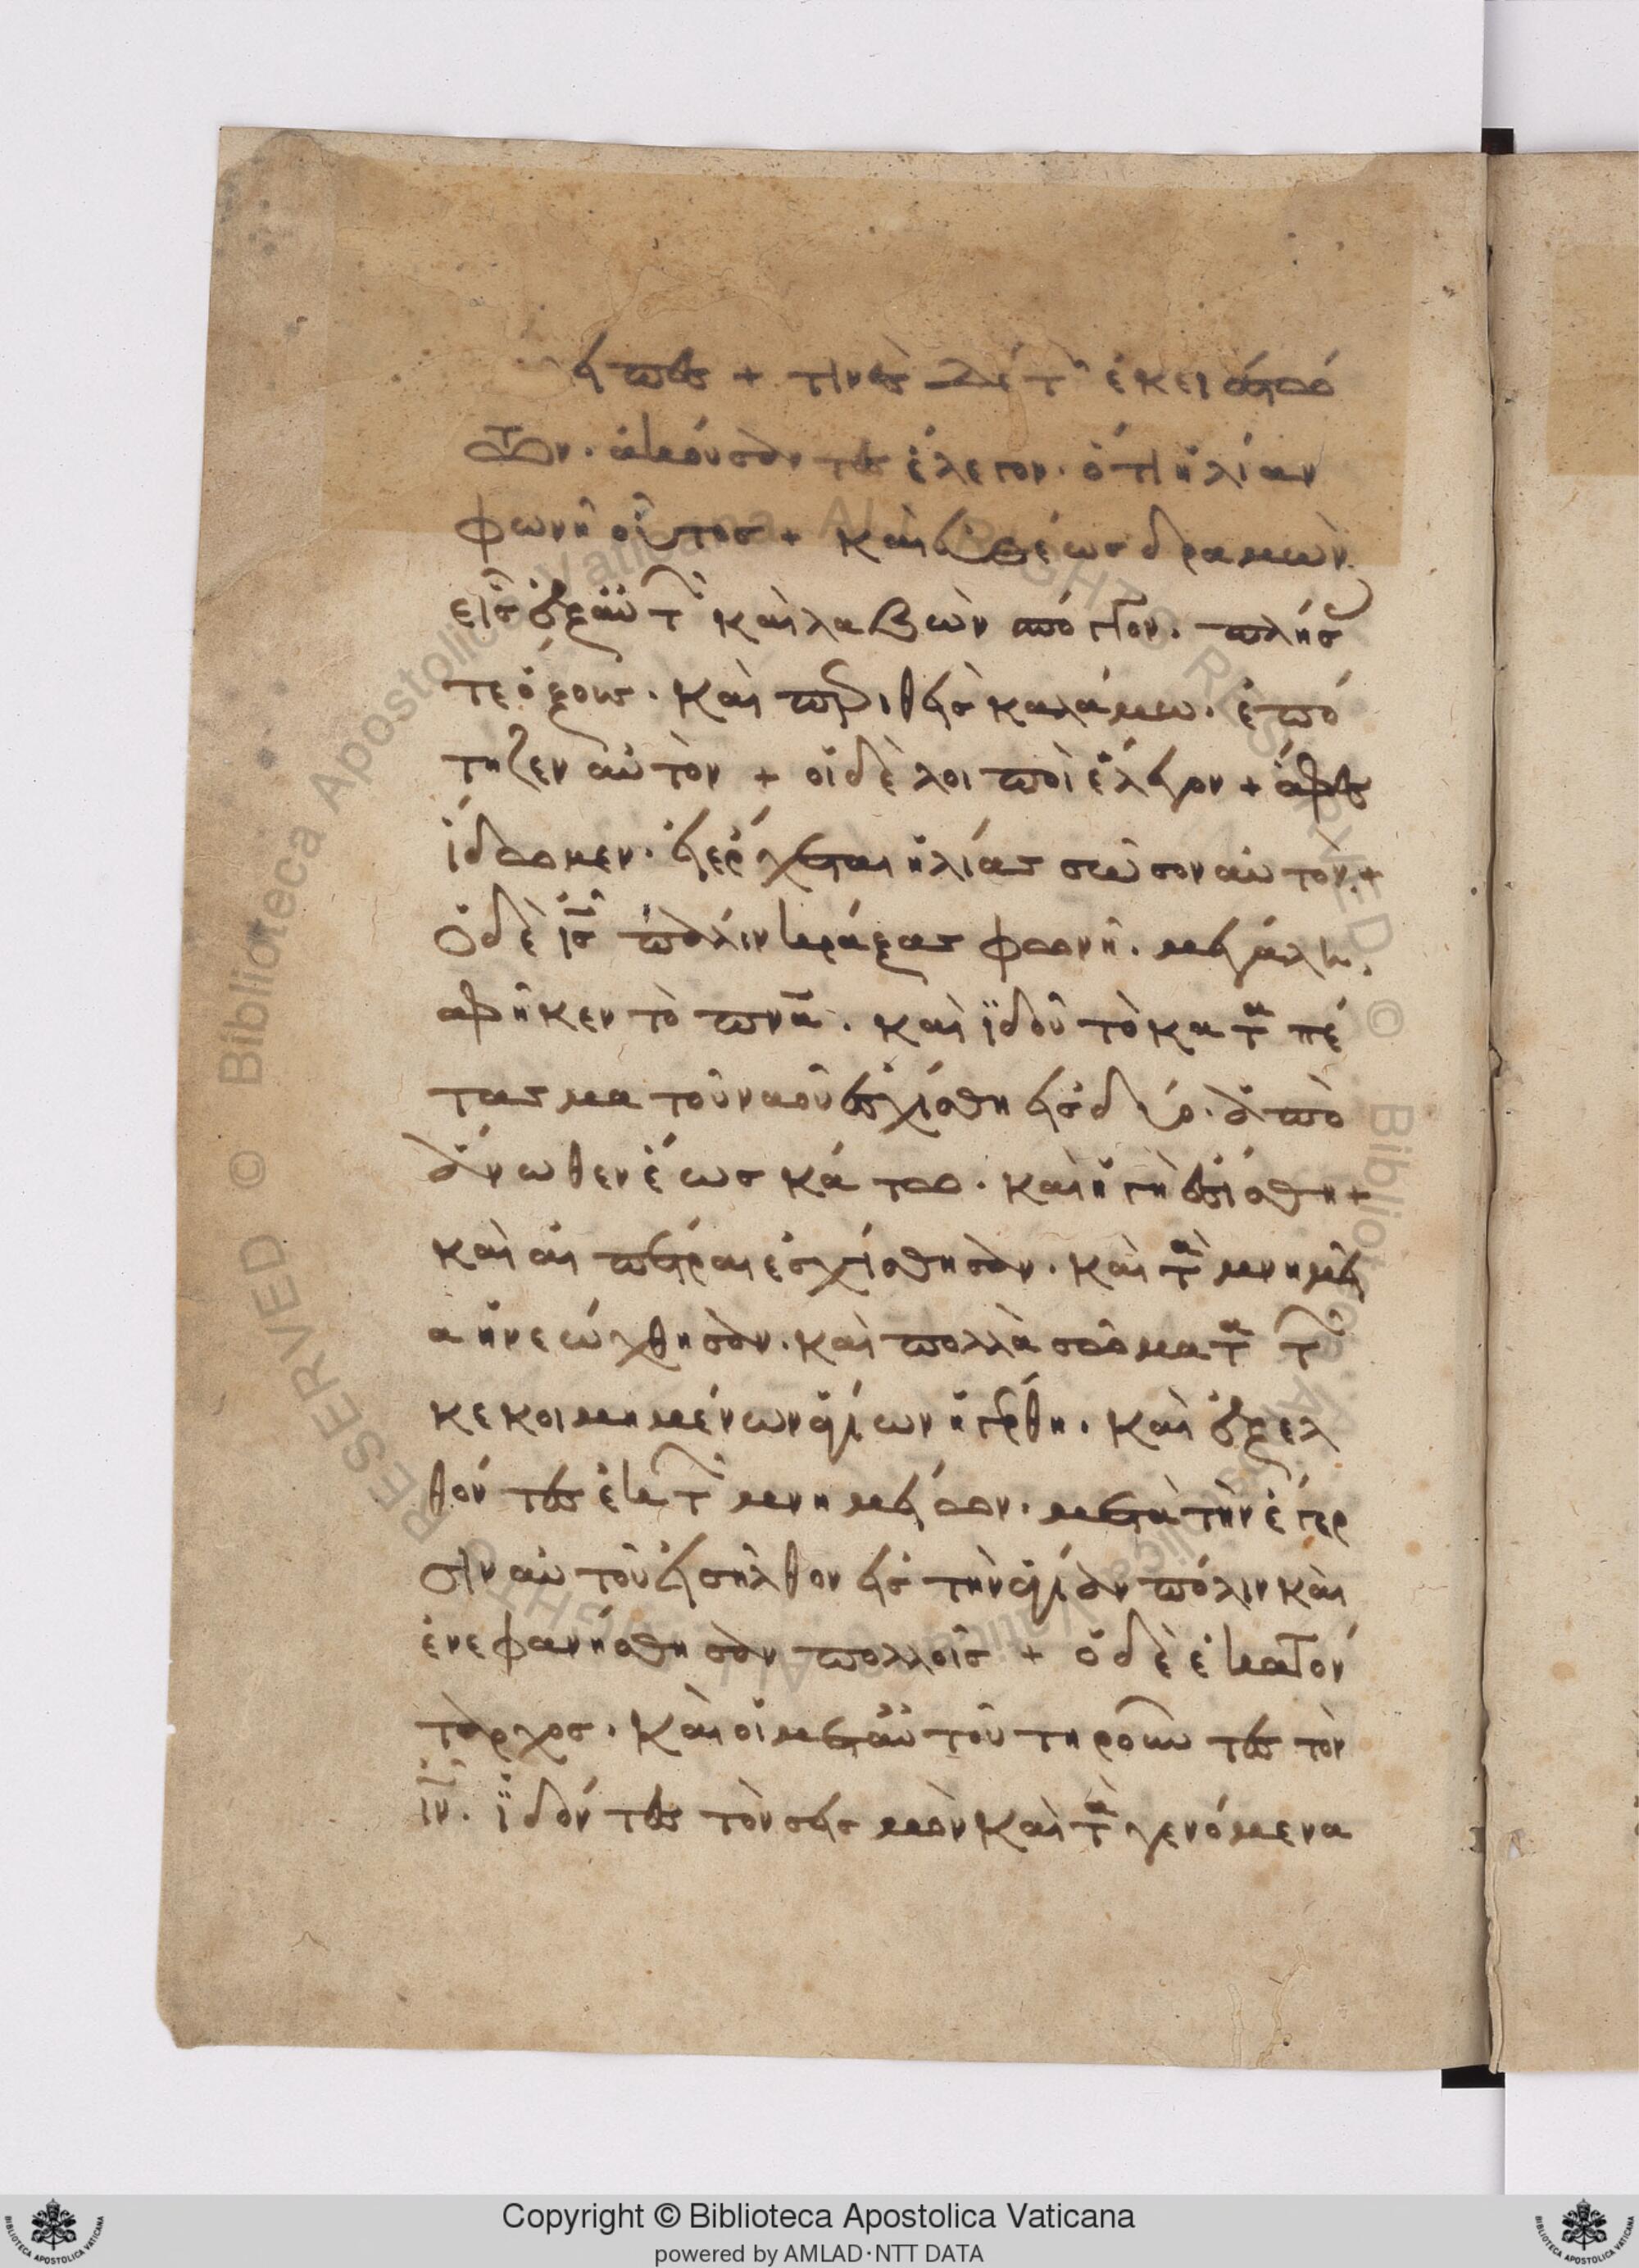 ἐγκατέλιπες + τινὲς δὲ τῶν ἐκεῖ ἑστώ
των. ἀκούσαντες ἔλεγον. ὅτι ἡλίαν
φωνῆ οὗτος + καὶ εὐθέως δραμὼν
εἷς ἐξ αὐτῶν καὶ λαβὼν σπόγγον. πλήσ
τε ὄξους. καὶ περιθεὶς καλάμω. ἐπό
τηζεν αὐτὸν + οἱ δὲ λοιποὶ ἔλεγον + ἄφες
ἴδωμεν. εἰ ἔρχεται ἡλίας σῶσον αὐτὸν +
Ὁ δὲ ἰς πάλιν κράξας φωνῆ. μεγάλη,
ἀφῆκεν τὸ πνα. καὶ ἰδοῦ τὸ κατα πέ
τασμα τοῦ ναοῦ ἐσχίσθη εἰς δύο. ἀπὸ
ἄνωθεν ἕως κάτω. καὶ ἡ γὴ ἐσείσθη +
καὶ αἱ πέτραι ἐσχίσθησαν. καὶ τὰ μνημεῖ
α ἠνεώχθησαν. καὶ πολλὰ σώματα τῶν
κεκοιμημένων ἁγίων ἠγέρθη. καὶ ἐξελ
θόντες ἐκ τῶν μνημείων. μετὰ τὴν ἔγερ
σιν αὐτοῦ εἰσῆλθον εἰς τὴν ἁγίαν πόλιν καὶ
ἐνεφανήσθησαν πολλοῖς + ὁ δὲ ἑκατόν
ταρχος. καὶ οἱ μετ αὐτοῦ τηροῦντες τὸν
ιν. ἰδόντες τὸν σεισμὸν καὶ τὰ γενόμενα
Copyright © Biblioteca Apostolica Vaticana
powered by AMLAD·NTT DATA